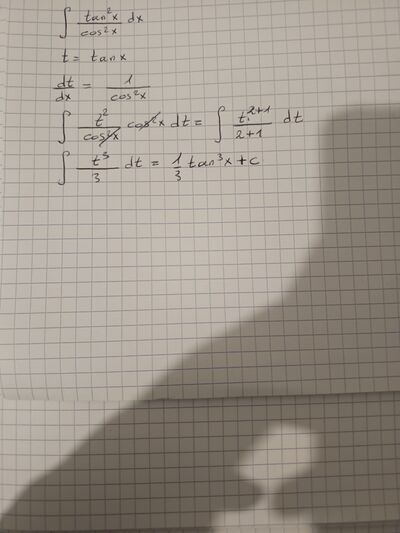 ∫ tan²x / cos²x dx
t = tan x
dt/dx = 1 / cos²x
∫ t² / cos²x cos²x dt = ∫ t²⁺¹ / 2+1 dt
∫ t³ / 3 dt = 1/3 tan³x + c